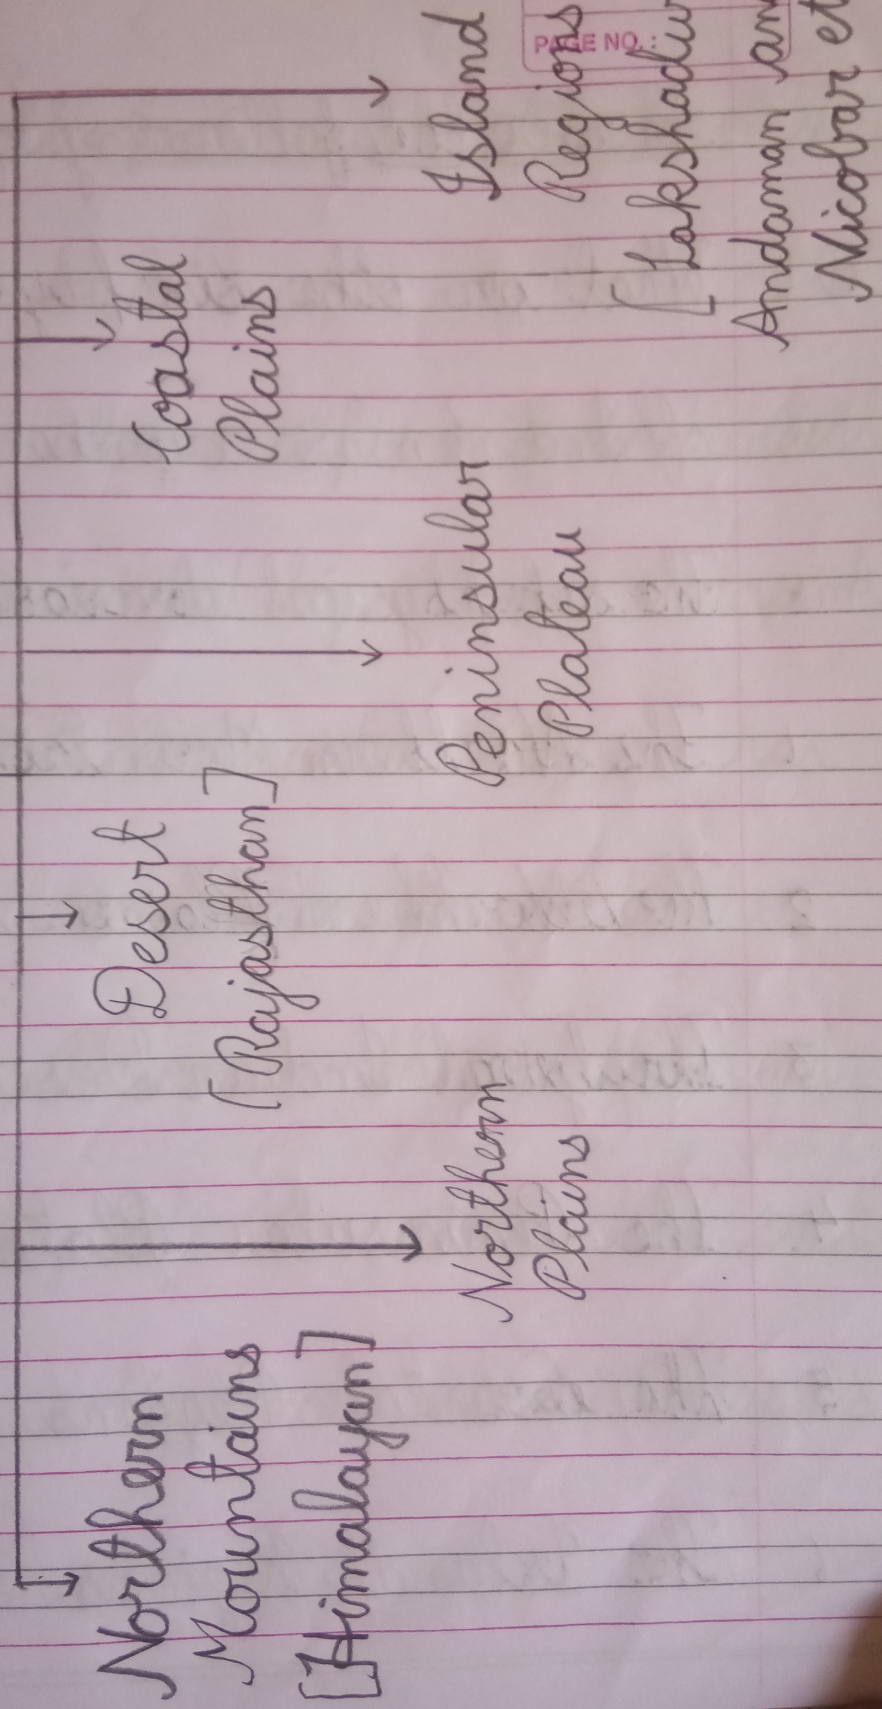 Northern
Mountains
[Himalayan]
Northern
Plains
Desert
[Rajasthan]
Peninsular
Plateau
Coastal
Plains
Island
Regions
[Lakshadw
Andaman an
Nicobar et
PAGE NO.: